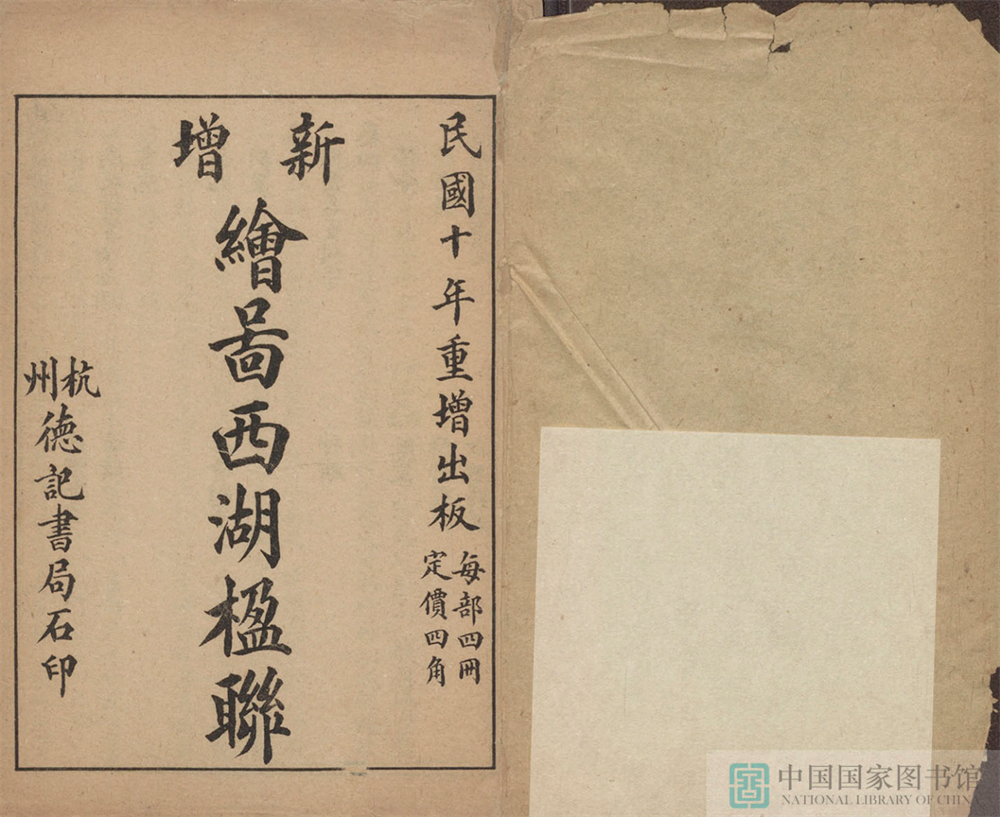 民國十年重增出板
每部四冊
定價四角
新增
繪啚西湖楹聯
杭州
德記書局石印
中国国家图书馆
NATIONAL LIBRARY OF CHINA